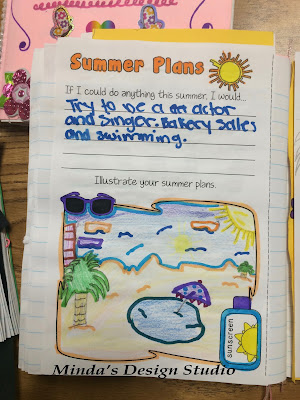 Summer Plans
If I could do anything this summer, I would...
Try to be a an actor
and singer. Bakery Sales
and swimming.
Illustrate your summer plans.
sunscreen
Minda's Design Studio